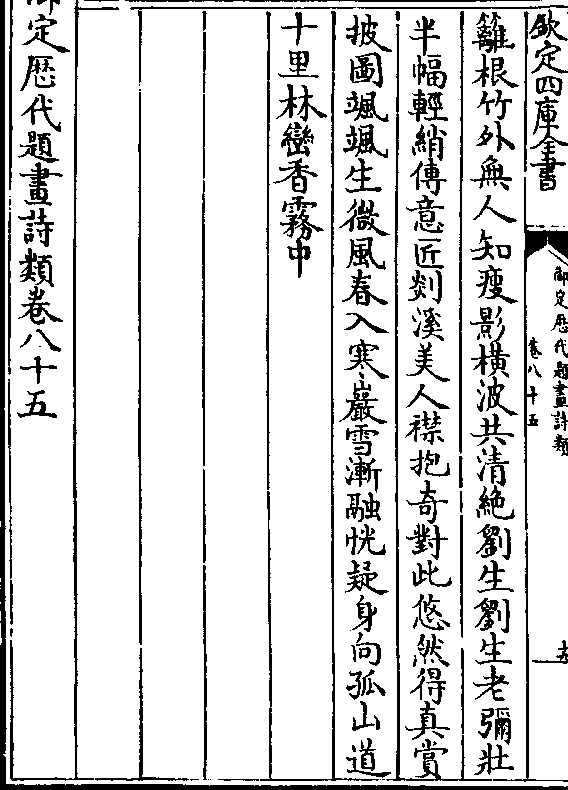 欽定四庫全書
御定歴代題畫詩類
卷八十五
籬根竹外無人知瘦影橫波共清絶劉生劉生老彌壯
半幅輕綃傳意匠剡溪美人襟抱奇對此悠然得真賞
披圖颯颯生微風春入寒巖雪漸融恍疑身向孤山道
十里林巒香霧中
御定歴代題畫詩類卷八十五